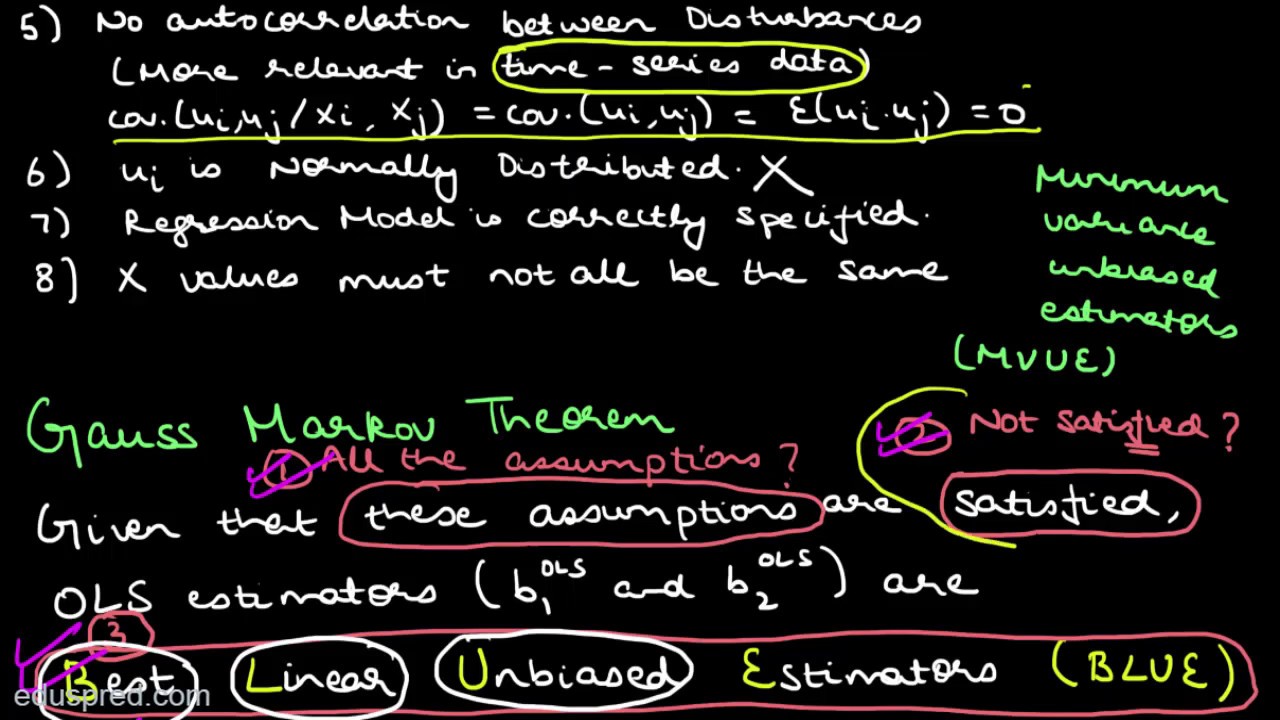 5) No autocorrelation between Disturbances
(More relevant in time-series data)
cov.(ui,uj/Xi, Xj) = cov.(ui,uj) = E(ui.uj) = 0
6) ui is Normally Distributed. X
7) Regression Model is correctly specified.
8) X values must not all be the same
Minimum
variance
unbiased
estimators
(MVUE)
Gauss Markov Theorem
① All the assumptions?
② Not satisfied?
Given that these assumptions are satisfied,
OLS estimators (b₁ᴼᴸˢ and b₂ᴼᴸˢ) are
3
Best Linear Unbiased Estimators (BLUE)
eduspred.com